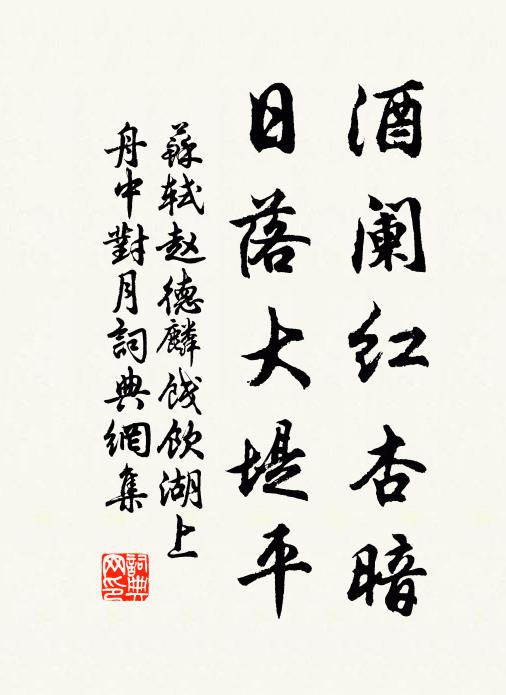 酒阑红杏暗
日落大堤平
蘇轼赵德麟餞飲湖上
舟中對月詞典網集
詞典
网印